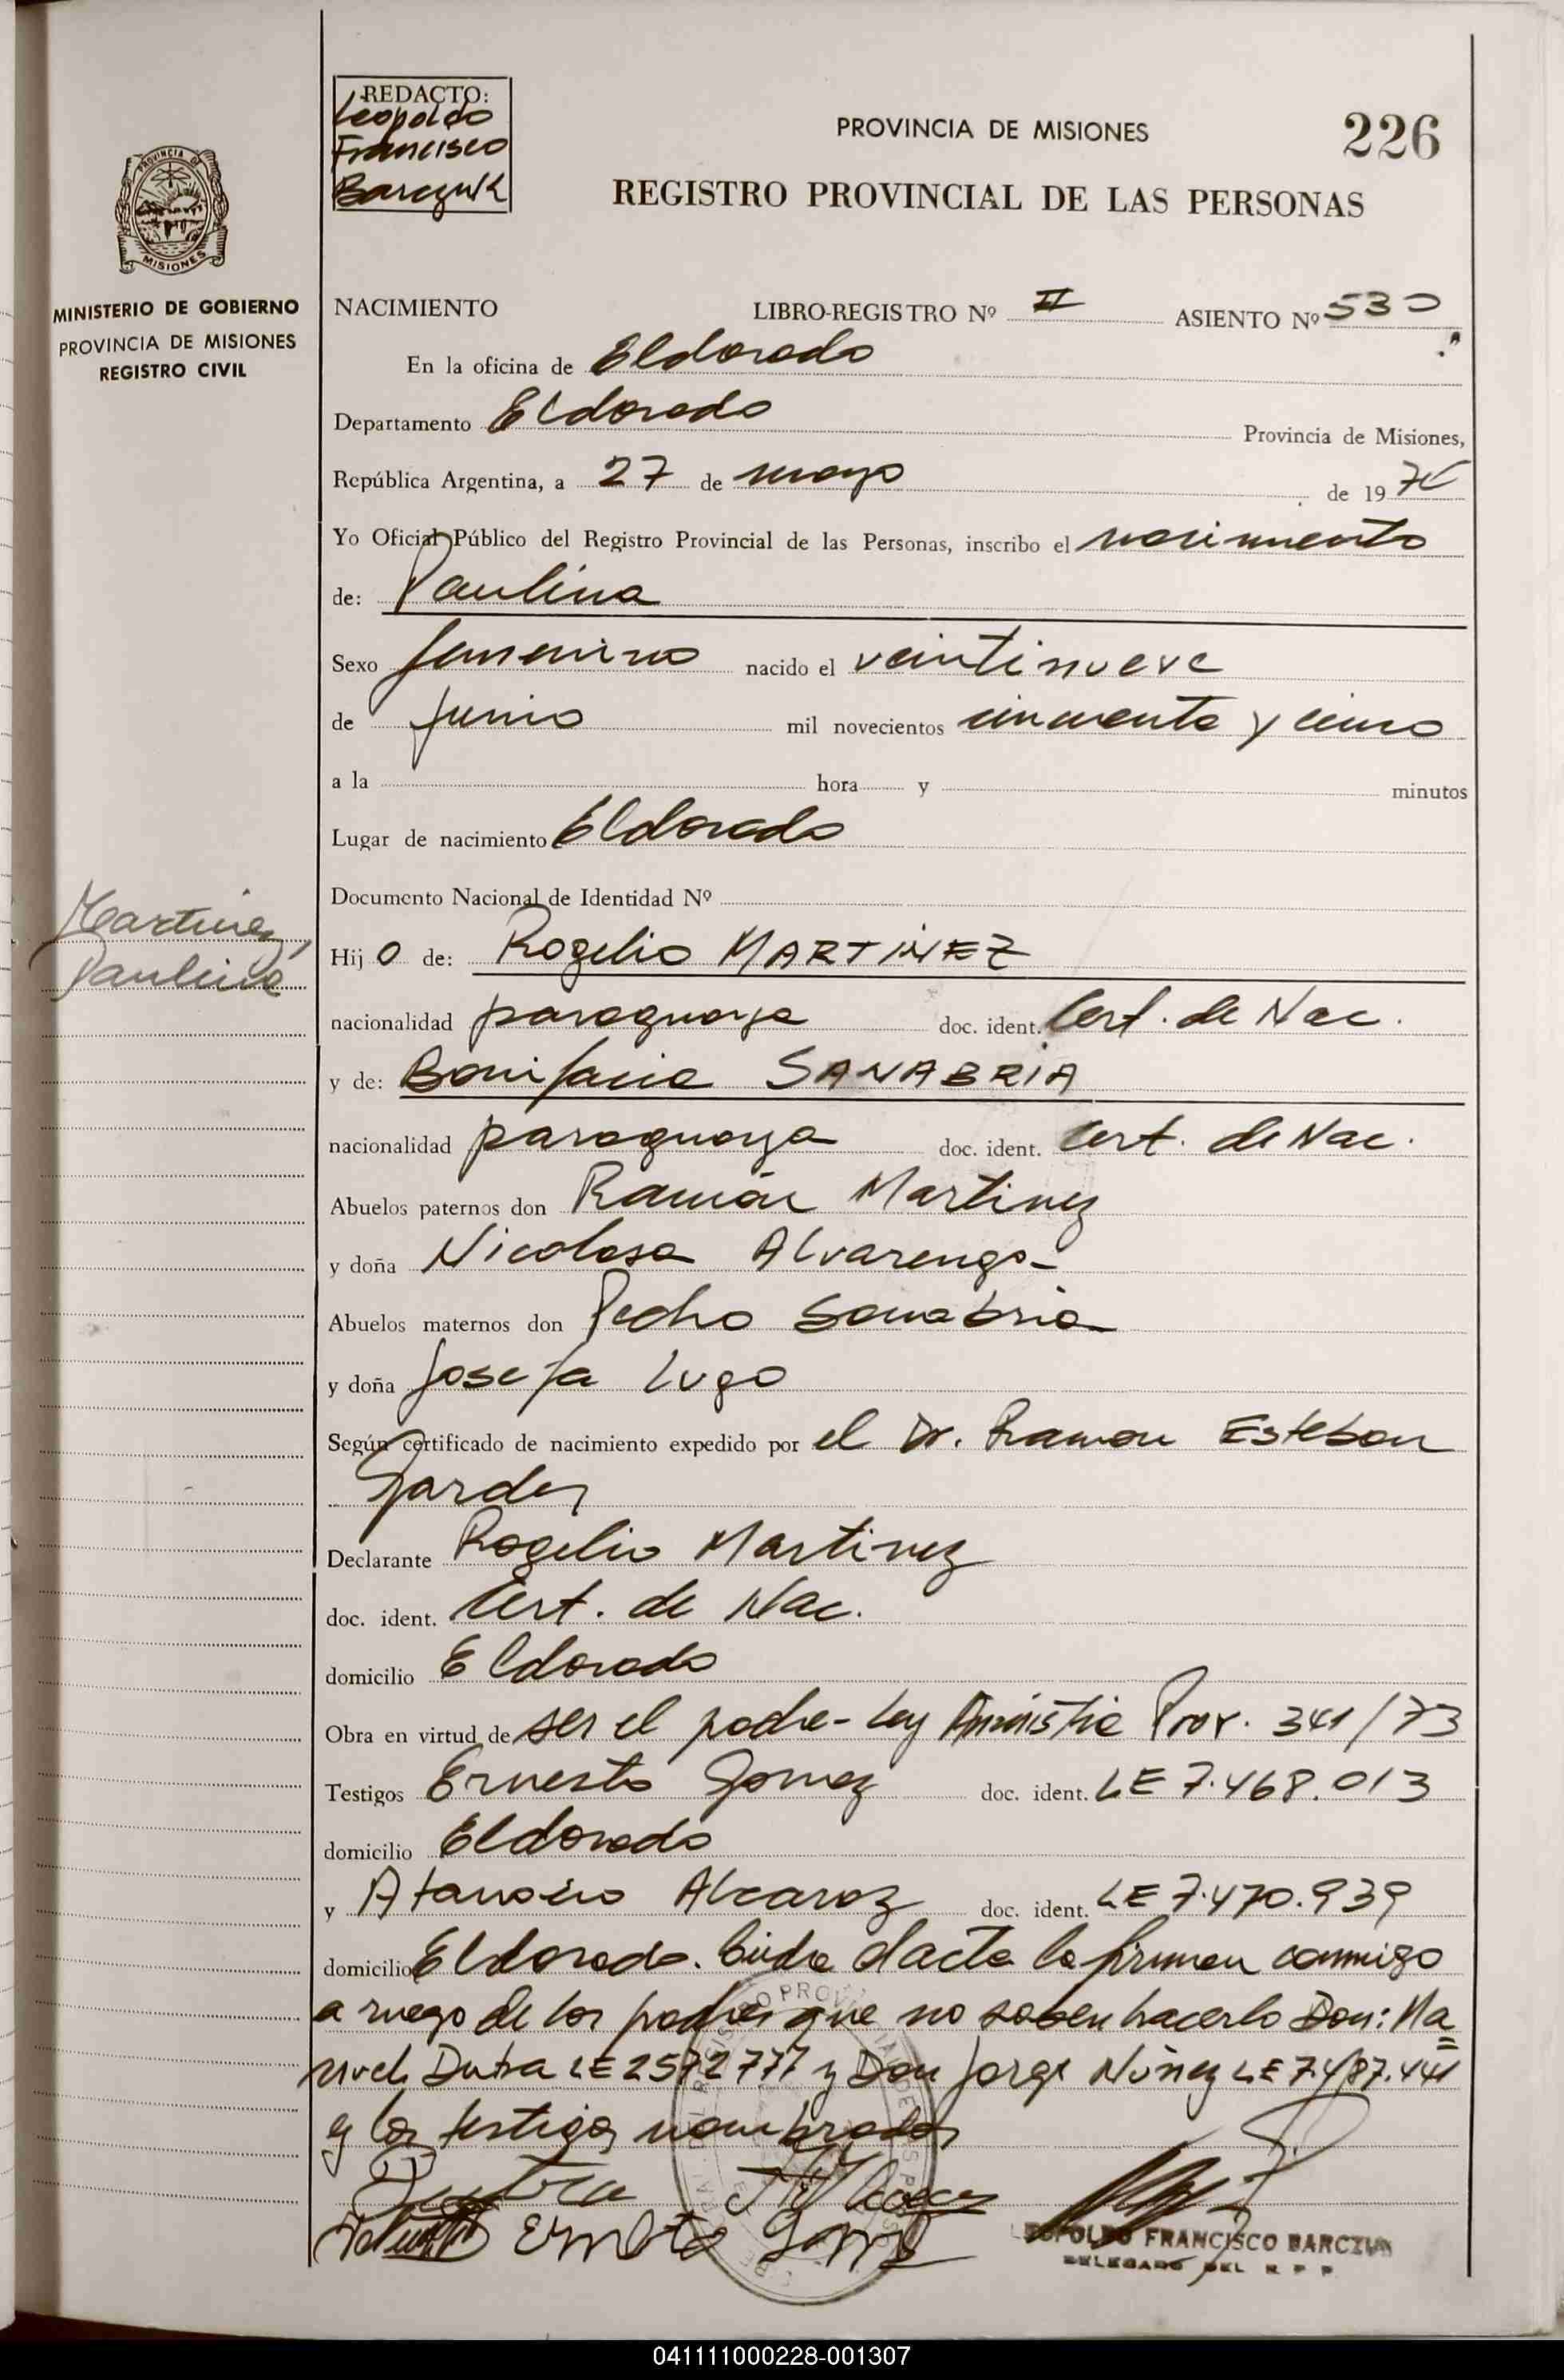 REDACTO:
Leopoldo
Francisco
Barczuk
PROVINCIA DE MISIONES
226
REGISTRO PROVINCIAL DE LAS PERSONAS
PROVINCIA DE
MISIONES
MINISTERIO DE GOBIERNO
PROVINCIA DE MISIONES
REGISTRO CIVIL
NACIMIENTO LIBRO-REGISTRO Nº II ASIENTO Nº 530
En la oficina de Eldorado
Departamento Eldorado Provincia de Misiones,
República Argentina, a 27 de mayo de 19
Yo Oficial Público del Registro Provincial de las Personas, inscribo el nacimiento
de: Paulina
Sexo femenino nacido el veintinueve
de junio mil novecientos cincuenta y cinco
a la hora y minutos
Lugar de nacimiento Eldorado
Documento Nacional de Identidad Nº
Martinez,
Paulina
Hij o de: Rogelio MARTINEZ
nacionalidad paraguaya doc. ident. Cert. de Nac.
y de: Bonifacia SANABRIA
nacionalidad paraguaya doc. ident. Cert. de Nac.
Abuelos paternos don Ramón Martinez
y doña Nicolasa Alvarenga-
Abuelos maternos don Pedro Sanabria
y doña Josefa Lugo
Según certificado de nacimiento expedido por el Dr. Ramon Esteban
Gardes
Declarante Rogelio Martinez
doc. ident. Cert. de Nac.
domicilio Eldorado
Obra en virtud de ser el padre- Ley Amnistia Prov. 341/73
Testigos Ernesto Gomez doc. ident. LE 7.468.013
domicilio Eldorado
y Atanacio Alcaraz doc. ident. LE 7.470.939
domicilio Eldorado. Leida el acta la firman conmigo
a ruego de los padres que no saben hacerlo Don: Ma=
nuel Dutra LE 2572777 y Don Jorge Núñez LE 7.487.441
y los testigos nombrados
Dutra
Ernesto Gomez
LEOPOLDO FRANCISCO BARCZUK
DELEGADO DEL R P P
041111000228-001307